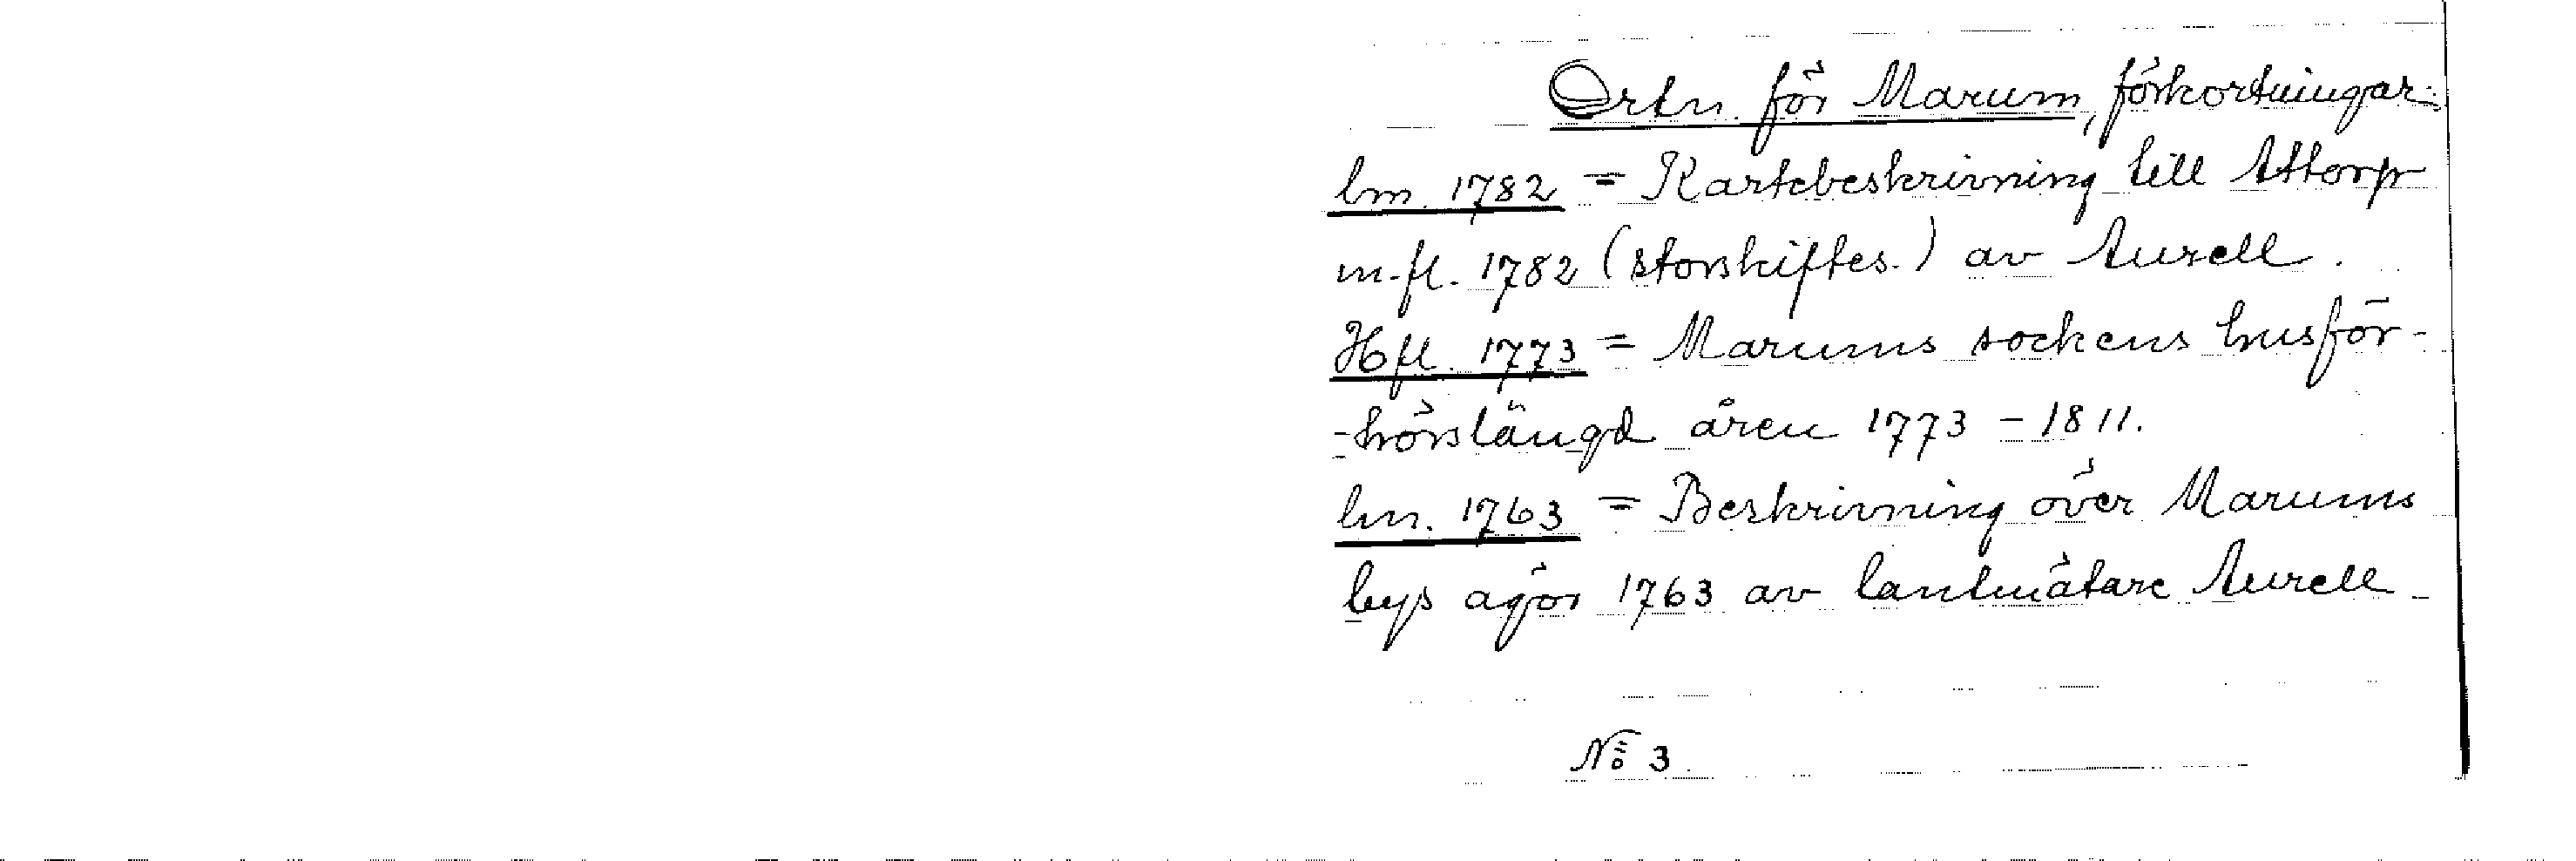 Ortn. för Marum, förkortningar:
lm. 1782 = Kartebeskrivning till Attorp
m.fl. 1782 (storskiftes.) av Aurell.
Hfl. 1773 = Marums sockens husför-
-hörslängd åren 1773 - 1811.
lm. 1763 = Beskrivning över Marums
bys ägor 1763 av lantmätare Aurell
No 3